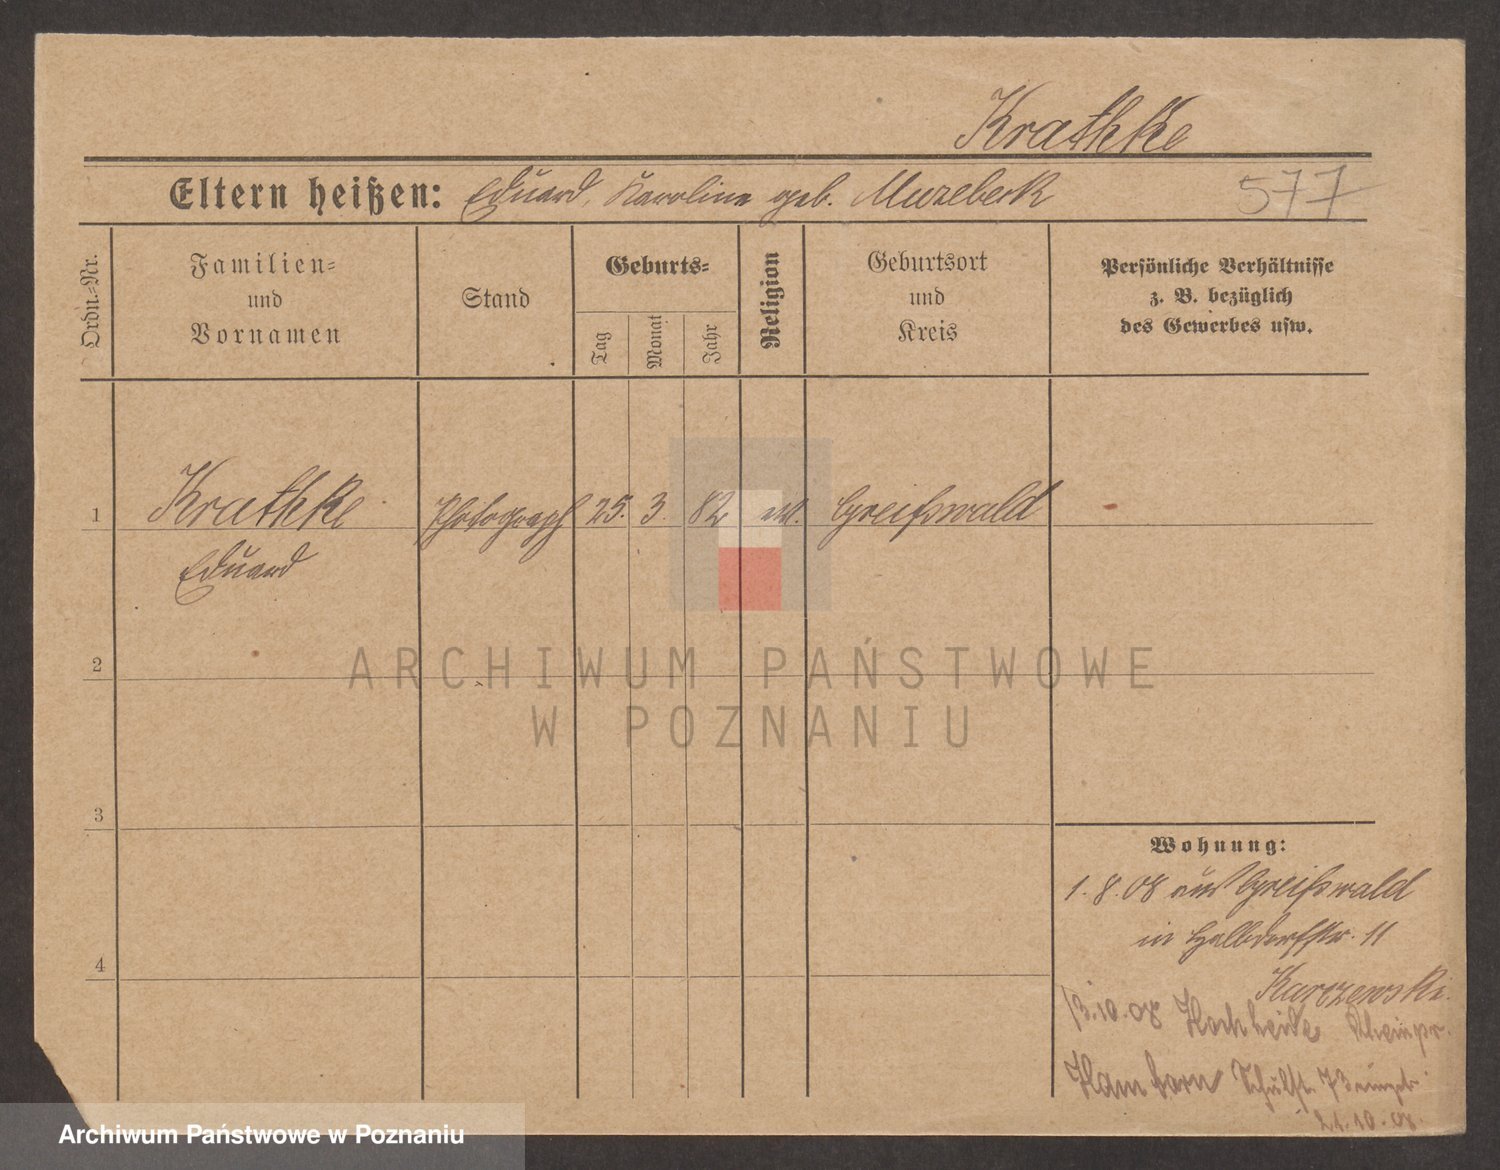 Krathke
Eltern heißen: Eduard, Karoline geb. Muzebeck
577
Ordn.=Nr.
Familien=
und
Vornamen
Stand
Geburts=
Tag
Monat
Jahr
Religion
Geburtsort
und
Kreis
Persönliche Verhältnisse
z. B. bezüglich
des Gewerbes usw.
1
Krathke
Eduard
Photograph
25.
3.
82
ev.
Greifswald
2
3
4
ARCHIWUM PAŃSTWOWE
W POZNANIU
Wohnung:
1. 8. 08 aus Greifswald
in Halbdorfstr. 11
Karczewski.
13.10.08 Hochheide Rheinpr.
Hamborn Schulst. 73
21.10.08.
Archiwum Państwowe w Poznaniu